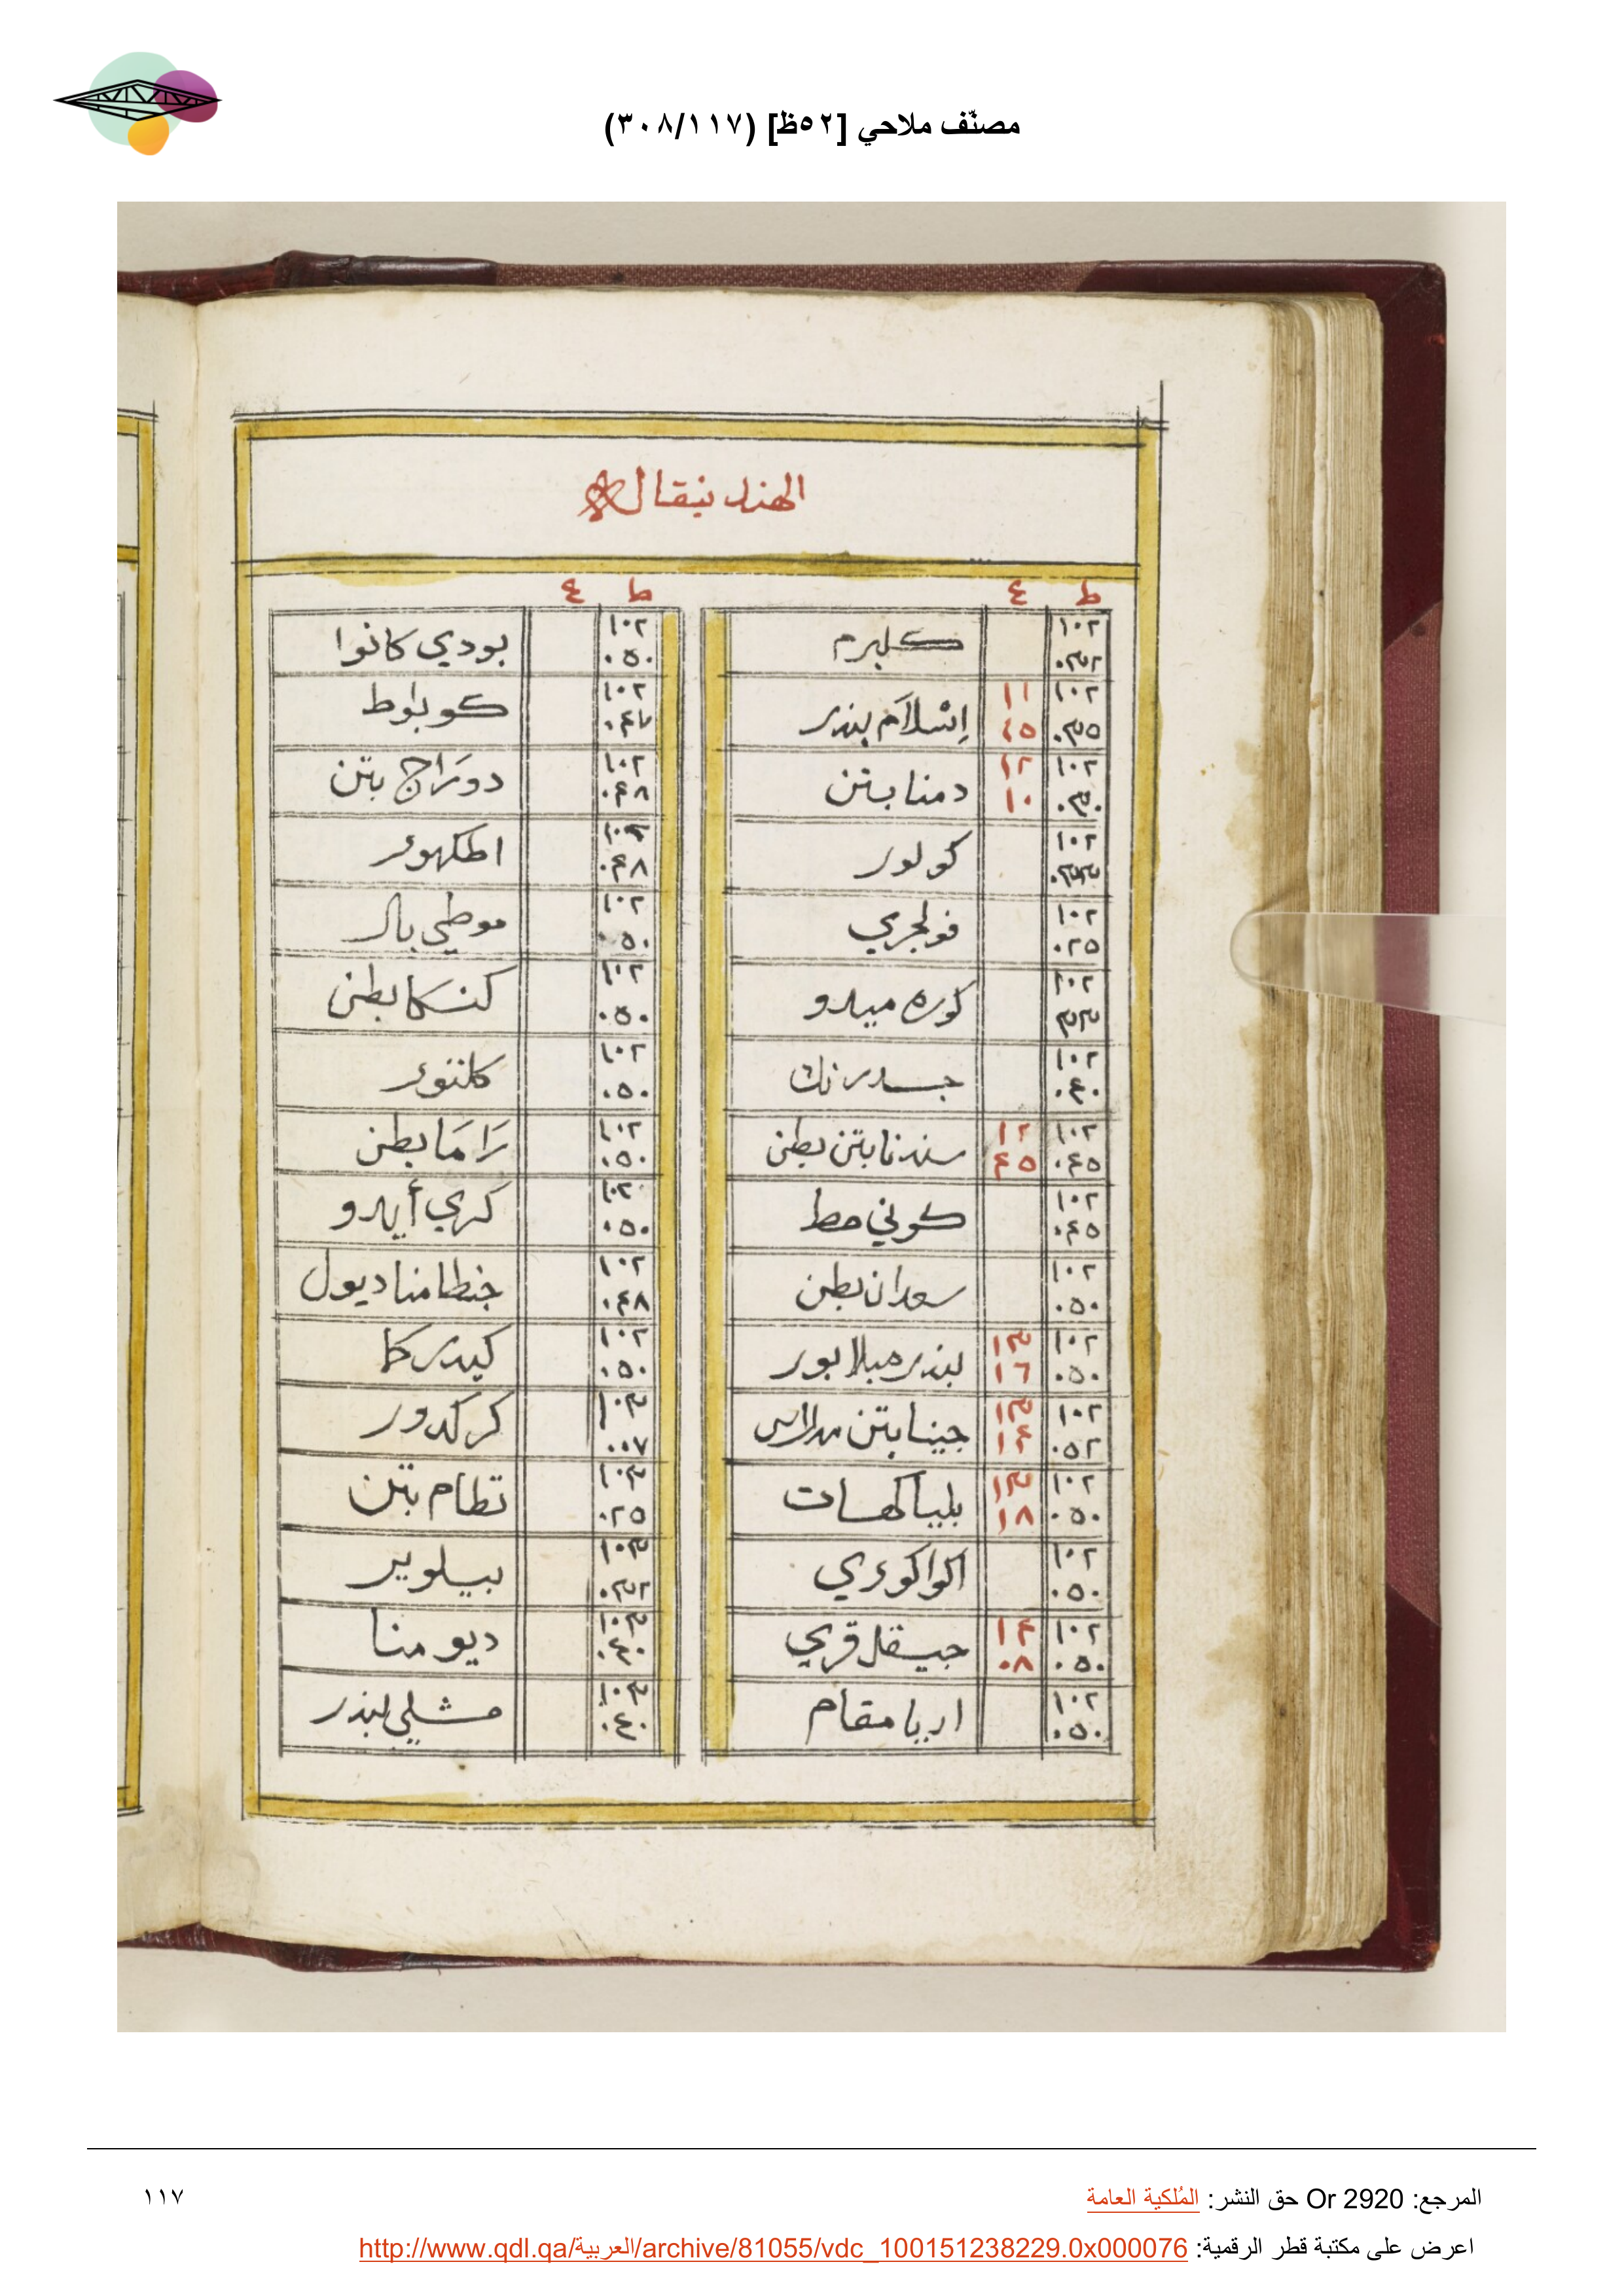 مصنّف ملاحي [٥٢ظ] (٣٠٨/١١٧)
الهند بنقال
ط ع ط ع
١٠٢ ٠٣٢ كلبرم
١٠٢ ٠٣٥ ١١ ٤٥ إسْلاَم بندر
١٠٢ ٠٣٠ ١٢ ١٠ دمنا بتن
١٠٢ ٠٣٣ كولور
١٠٢ ٠٢٥ فولجري
١٠٢ ٣٣ كوره ميدو
١٠٢ ٠٤٠ جسدرنك
١٠٢ ٠٤٥ ١٢ ٤٥ سندنا بتن بطن
١٠٢ ٠٤٥ كوني مط
١٠٢ ٠٥٠ سعدان بطن
١٠٢ ٠٥٠ ١٣ ١٦ بندر ميلابور
١٠٢ ٠٥٢ ١٣ ١٤ جينابتن مدراس
١٠٢ ٠٥٠ ١٣ ١٨ بلياكهات
١٠٢ ٠٥٠ اكواكوري
١٠٢ ٠٥٠ ١٤ ٠٨ جيقل قري
١٠٢ ٠٥٠ اريا مقام
١٠٢ ٠٥٠ بودي كانوا
١٠٢ ٠٤٧ كوباوط
١٠٢ ٠٤٨ دورَاج بتن
١٠٢ ٠٤٨ اطكهور
١٠٢ ٠٥٠ موطي بال
١٠٢ ٠٥٠ كنسكا بطن
١٠٢ ٠٥٠ كلنتور
١٠٢ ٠٥٠ رَامَا بطن
١٠٢ ٠٥٠ كري أيدو
١٠٢ ٠٤٨ جنطامنا ديول
١٠٢ ٠٥٠ كيدركا
١٠٣ ٠٠٧ كركدور
١٠٣ ٠٢٥ نظام بتن
١٠٣ ٠٣٢ بيلوير
١٠٣ ٠٤٠ ديو منا
١٠٣ ٠٤٠ مشلي بندر
المرجع: Or 2920 حق النشر: المُلكية العامة ١١٧
اعرض على مكتبة قطر الرقمية: http://www.qdl.qa/العربية/archive/81055/vdc_100151238229.0x000076